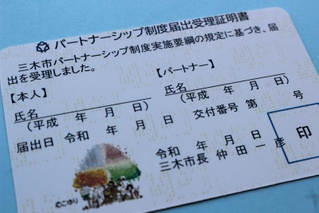 パートナーシップ制度届出受理証明書
三木市パートナーシップ制度実施要綱の規定に基づき、届
出を受理しました。
【本人】 【パートナー】
氏名 氏名
(平成 年 月 日) (平成 年 月 日)
届出日 令和 年 月 日 交付番号 第 号
令和 年 月 日
三木市長 仲田 一彦
印